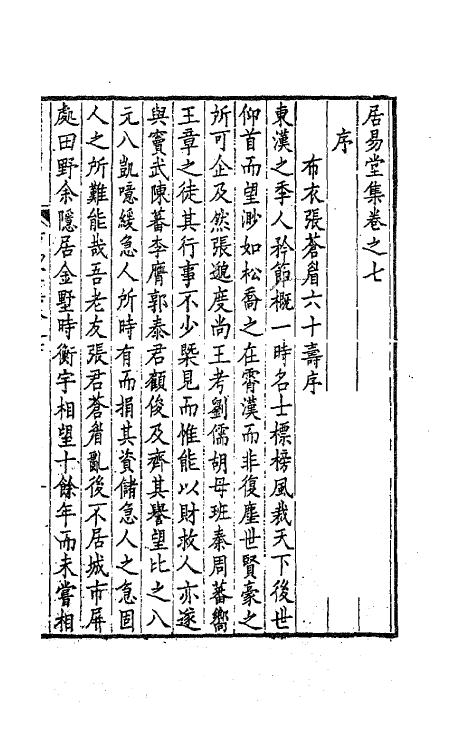 居易堂集卷之七
序
布衣張蒼眉六十壽序
東漢之季人矜節概一時名士標榜風裁天下後世
仰首而望渺如松喬之在霄漢而非復塵世賢豪之
所可企及然張邈度尚王考劉儒胡母班秦周蕃嚮
王章之徒其行事不少槩見而惟能以財救人亦遂
與竇武陳蕃李膺郭泰君顧俊及齊其譽望比之八
元八凱噫緩急人所時有而捐其資儲急人之急固
人之所難能哉吾老友張君蒼眉亂後不居城市屏
處田野余隱居金墅時衡宇相望十餘年而未嘗相